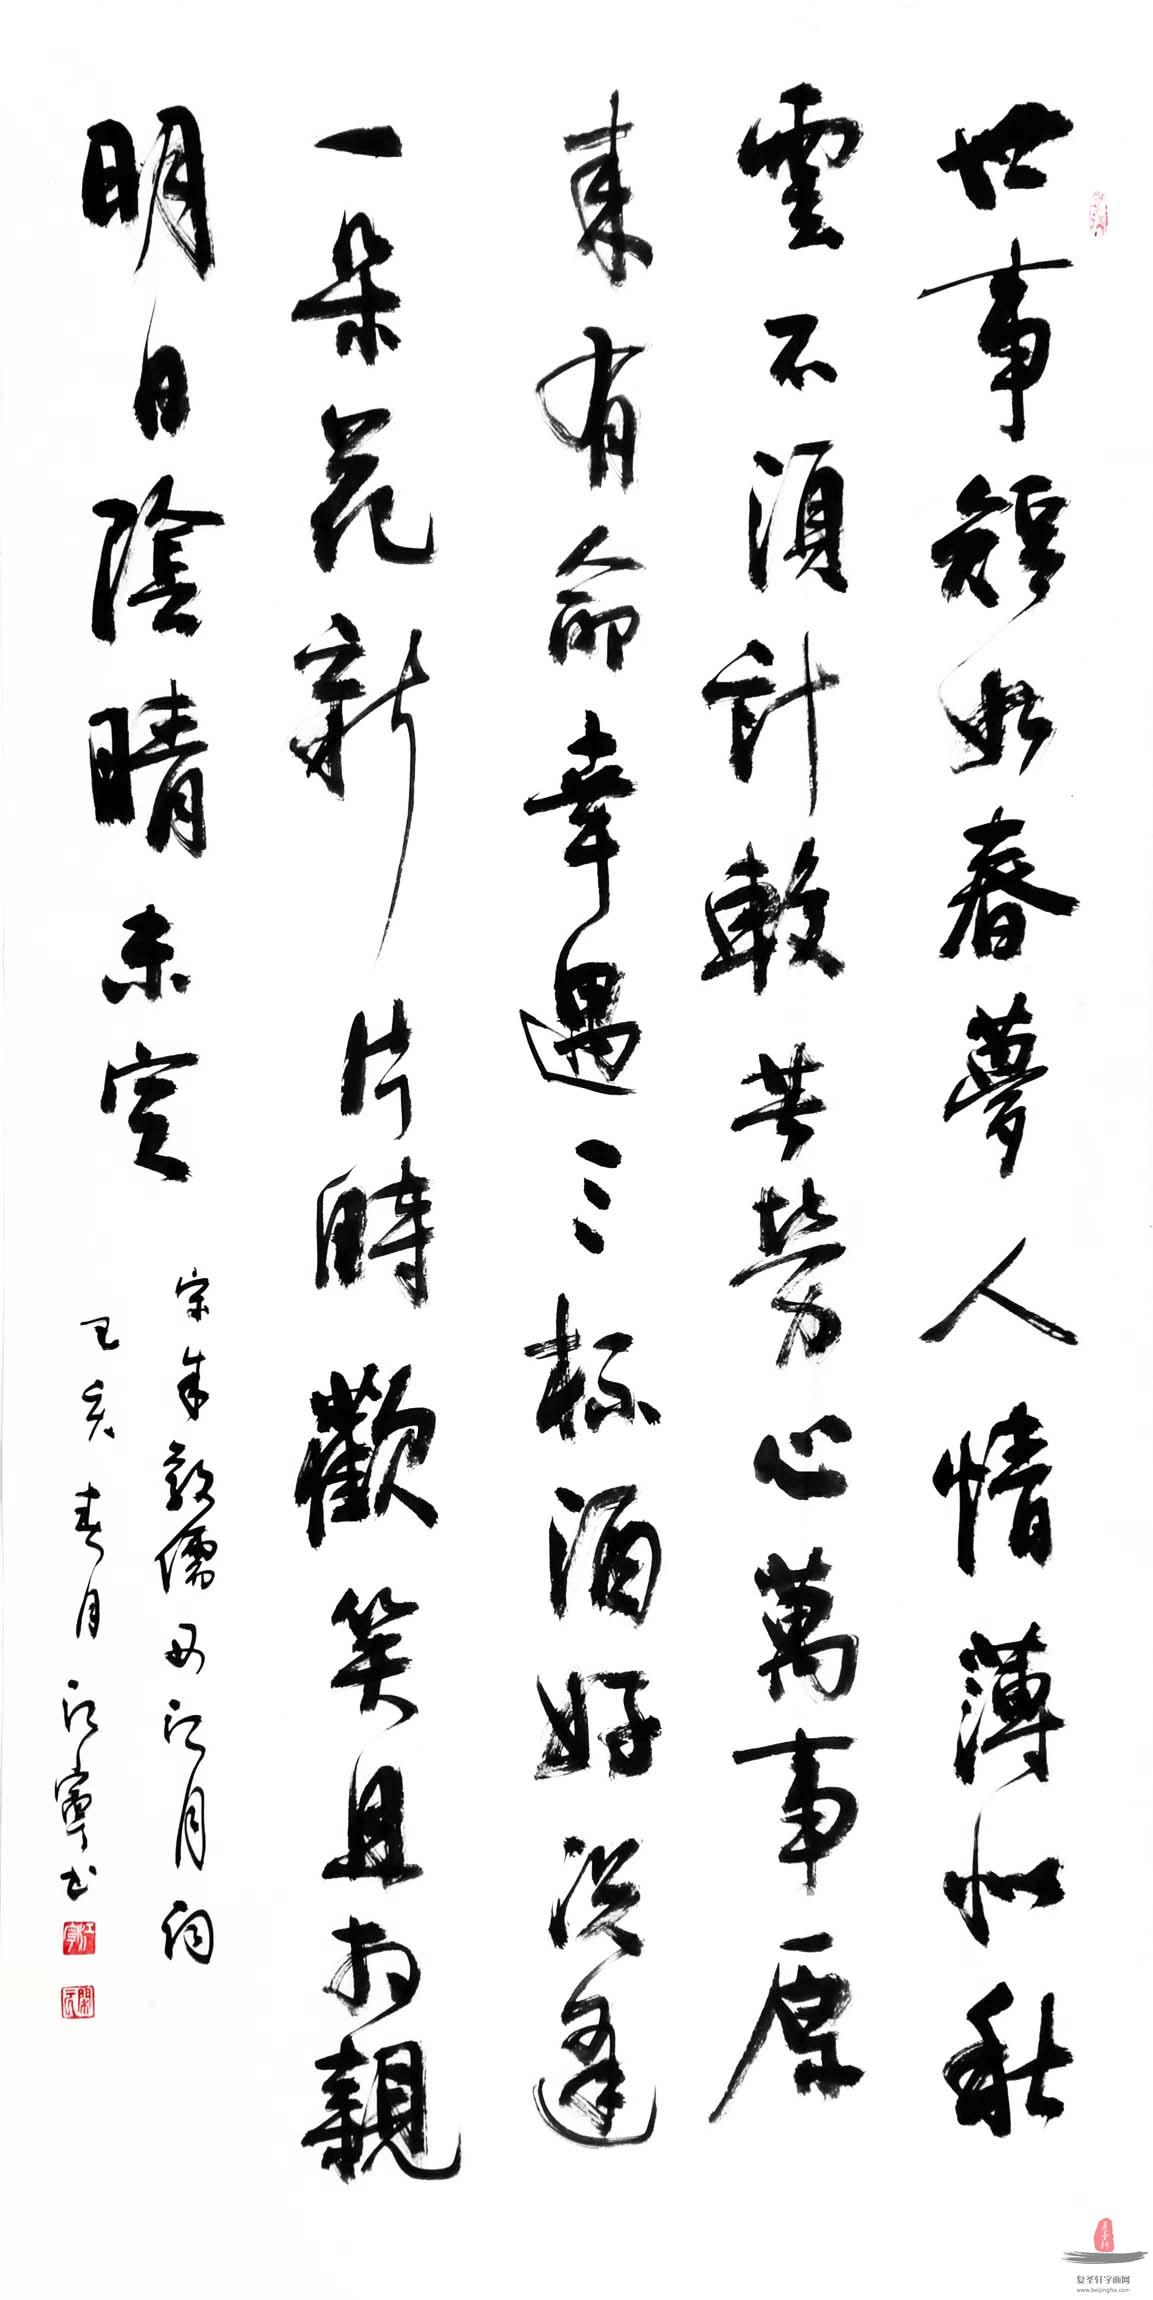 世事短如春夢人情薄似秋
雲不須計較苦勞心萬事原
來有命幸遇三杯酒好況逢
一朵花新片時歡笑且相親
明日陰晴未定
宋朱敦儒西江月詞
己亥春月江寧書
江寧
复圣轩字画网
www.beijingfsx.com